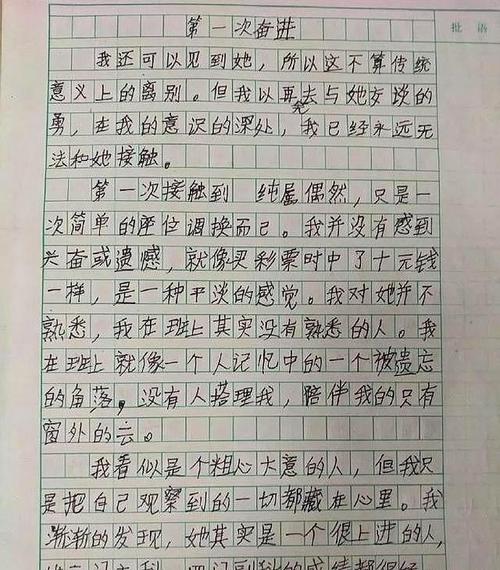 批 语
第一次奋进
我还可以见到她，所以这不算传统
意义上的离别。但我以再无去与她交谈的
勇，在我的意识的深处，我已经永远无
法和她接触。
第一次接触到 纯属偶然，只是一
次简单的座位调换而已。我并没有感到
兴奋或遗憾，就像买彩票时中了十元钱
一样，是一种平淡的感觉。我对她并不
熟悉，我在班上其实没有熟悉的人。我
在班上就像一个人记忆中的一个被遗忘
的角落，没有人搭理我，陪伴我的只有
窗外的云。
我看似是个粗心大意的人，但我只
是把自己观察到的一切都藏在心里。我
渐渐的发现，她其实是一个很上进的人，